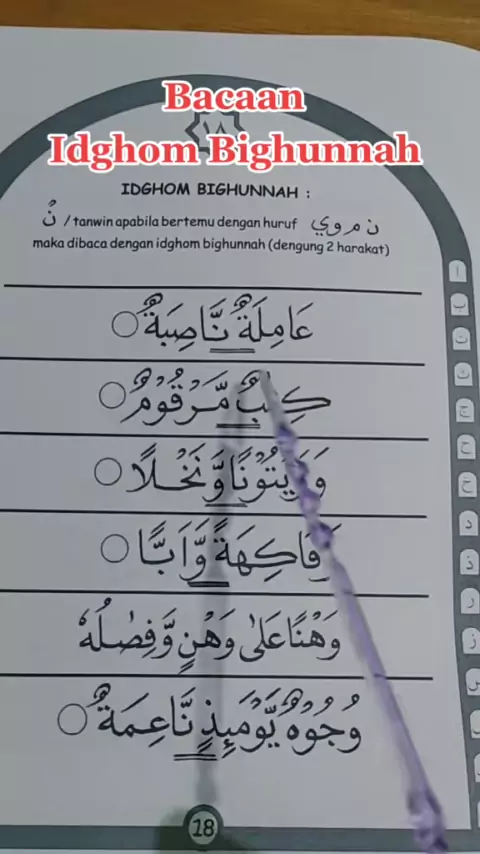 Bacaan
Idghom Bighunnah
١٨
IDGHOM BIGHUNNAH :
نْ / tanwin apabila bertemu dengan huruf ن م و ي
maka dibaca dengan idghom bighunnah (dengung 2 harakat)
عَامِلَةٌ نَّاصِبَةٌ
كِتٰبٌ مَّرْقُوْمٌ
وَزَيْتُوْنًا وَّنَخْلًا
وَفَاكِهَةً وَّاَبًّا
وَهْنًا عَلٰى وَهْنٍ وَّفِصٰلُهٗ
وُجُوْهٌ يَّوْمَىِٕذٍ نَّاعِمَةٌ
18
ا
ب
ت
ث
ج
ح
خ
د
ذ
ر
ز
س